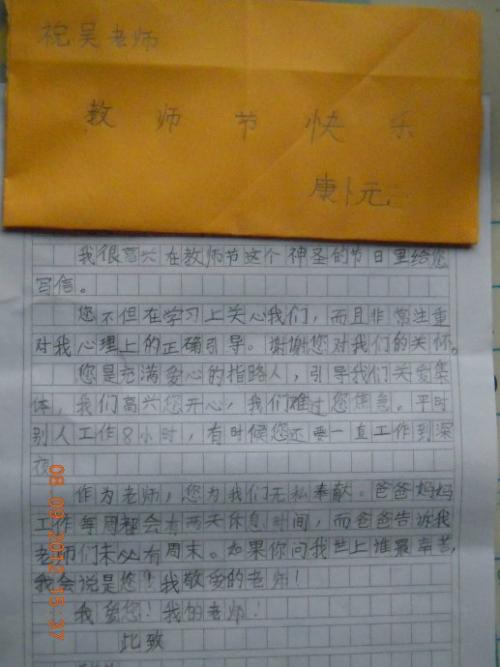 祝吴老师
教师节快乐
庚卜元
我很高兴在教师节这个神圣的节日里给您
写信。
您不但在学习上关心我们，而且非常注重
对我心理上的正确引导。谢谢您对我们的关怀。
您是充满爱心的指路人，引导我们关爱集
体，我们高兴您开心，我们难过您焦急。平时
别人工作8小时，有时候您还要一直工作到深
夜
作为老师，您为我们无私奉献。爸爸妈妈
工作每周都会有两天休息时间，而爸爸告诉我
老师们未必有周末。如果你问我世上谁最辛苦，
我会说是您！我敬爱的老师！
我爱您！我的老师！
此致
08.09.2012 15:37